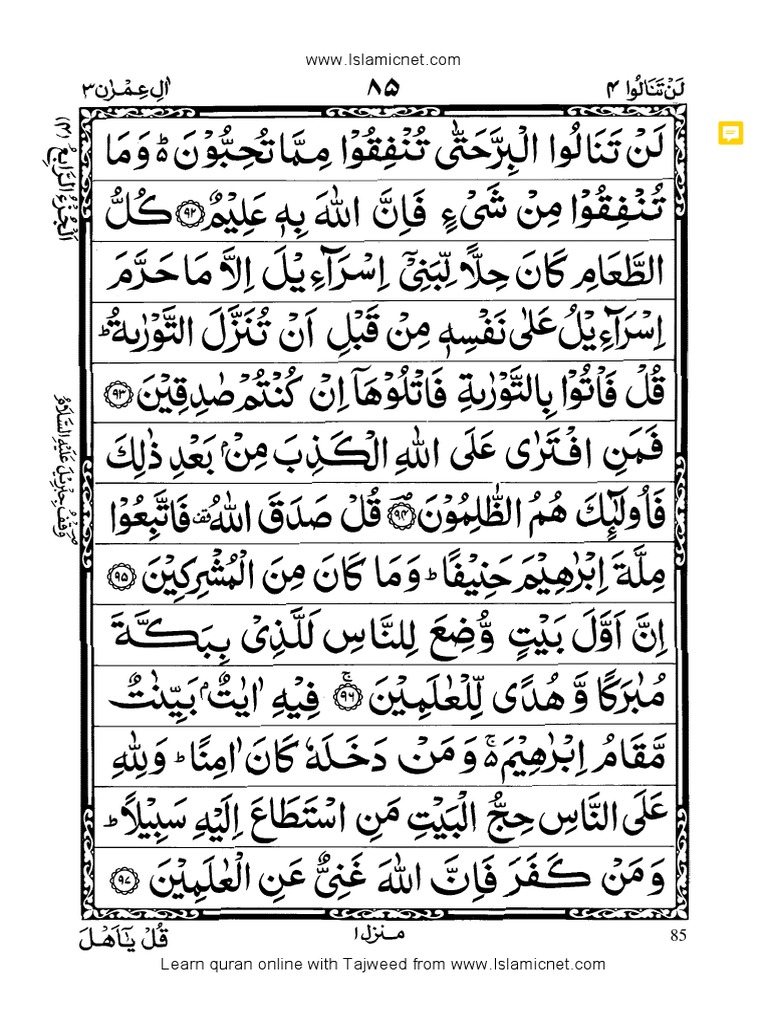 www.Islamicnet.com
لَنْ تَنَالُوا ۴ ۸۵ اٰلِ عِمْرٰن ۳
لَنْ تَنَالُوا الْبِرَّ حَتّٰى تُنْفِقُوْا مِمَّا تُحِبُّوْنَ ؕ۬ وَ مَا
تُنْفِقُوْا مِنْ شَیْءٍ فَاِنَّ اللّٰهَ بِهٖ عَلِیْمٌ ﴿۹۲﴾ كُلُّ
الطَّعَامِ كَانَ حِلًّا لِّبَنِیْۤ اِسْرَآءِیْلَ اِلَّا مَا حَرَّمَ
اِسْرَآءِیْلُ عَلٰى نَفْسِهٖ مِنْ قَبْلِ اَنْ تُنَزَّلَ التَّوْرٰىةُ ؕ
قُلْ فَاْتُوْا بِالتَّوْرٰىةِ فَاتْلُوْهَاۤ اِنْ كُنْتُمْ صٰدِقِیْنَ ﴿۹۳﴾
فَمَنِ افْتَرٰى عَلَى اللّٰهِ الْكَذِبَ مِنْۢ بَعْدِ ذٰلِكَ
فَاُولٰٓىِٕكَ هُمُ الظّٰلِمُوْنَ ﴿۹۴﴾ قُلْ صَدَقَ اللّٰهُ ۫ فَاتَّبِعُوْا
مِلَّةَ اِبْرٰهِیْمَ حَنِیْفًا ؕ وَ مَا كَانَ مِنَ الْمُشْرِكِیْنَ ﴿۹۵﴾
اِنَّ اَوَّلَ بَیْتٍ وُّضِعَ لِلنَّاسِ لَلَّذِیْ بِبَكَّةَ
مُبٰرَكًا وَّ هُدًى لِّلْعٰلَمِیْنَ ﴿۹۶﴾ۚ فِیْهِ اٰیٰتٌۢ بَیِّنٰتٌ
مَّقَامُ اِبْرٰهِیْمَ ۬ۚ وَ مَنْ دَخَلَهٗ كَانَ اٰمِنًا ؕ وَ لِلّٰهِ
عَلَى النَّاسِ حِجُّ الْبَیْتِ مَنِ اسْتَطَاعَ اِلَیْهِ سَبِیْلًا ؕ
وَ مَنْ كَفَرَ فَاِنَّ اللّٰهَ غَنِیٌّ عَنِ الْعٰلَمِیْنَ ﴿۹۷﴾
اَلْجُزْءُ الرَّابِعُ (۴)
وَقْفُ جِبْرِیْلَ عَلَیْهِ السَّلَامُ
85 منزل ۱ قُلْ یٰۤاَهْلَ
Learn quran online with Tajweed from www.Islamicnet.com